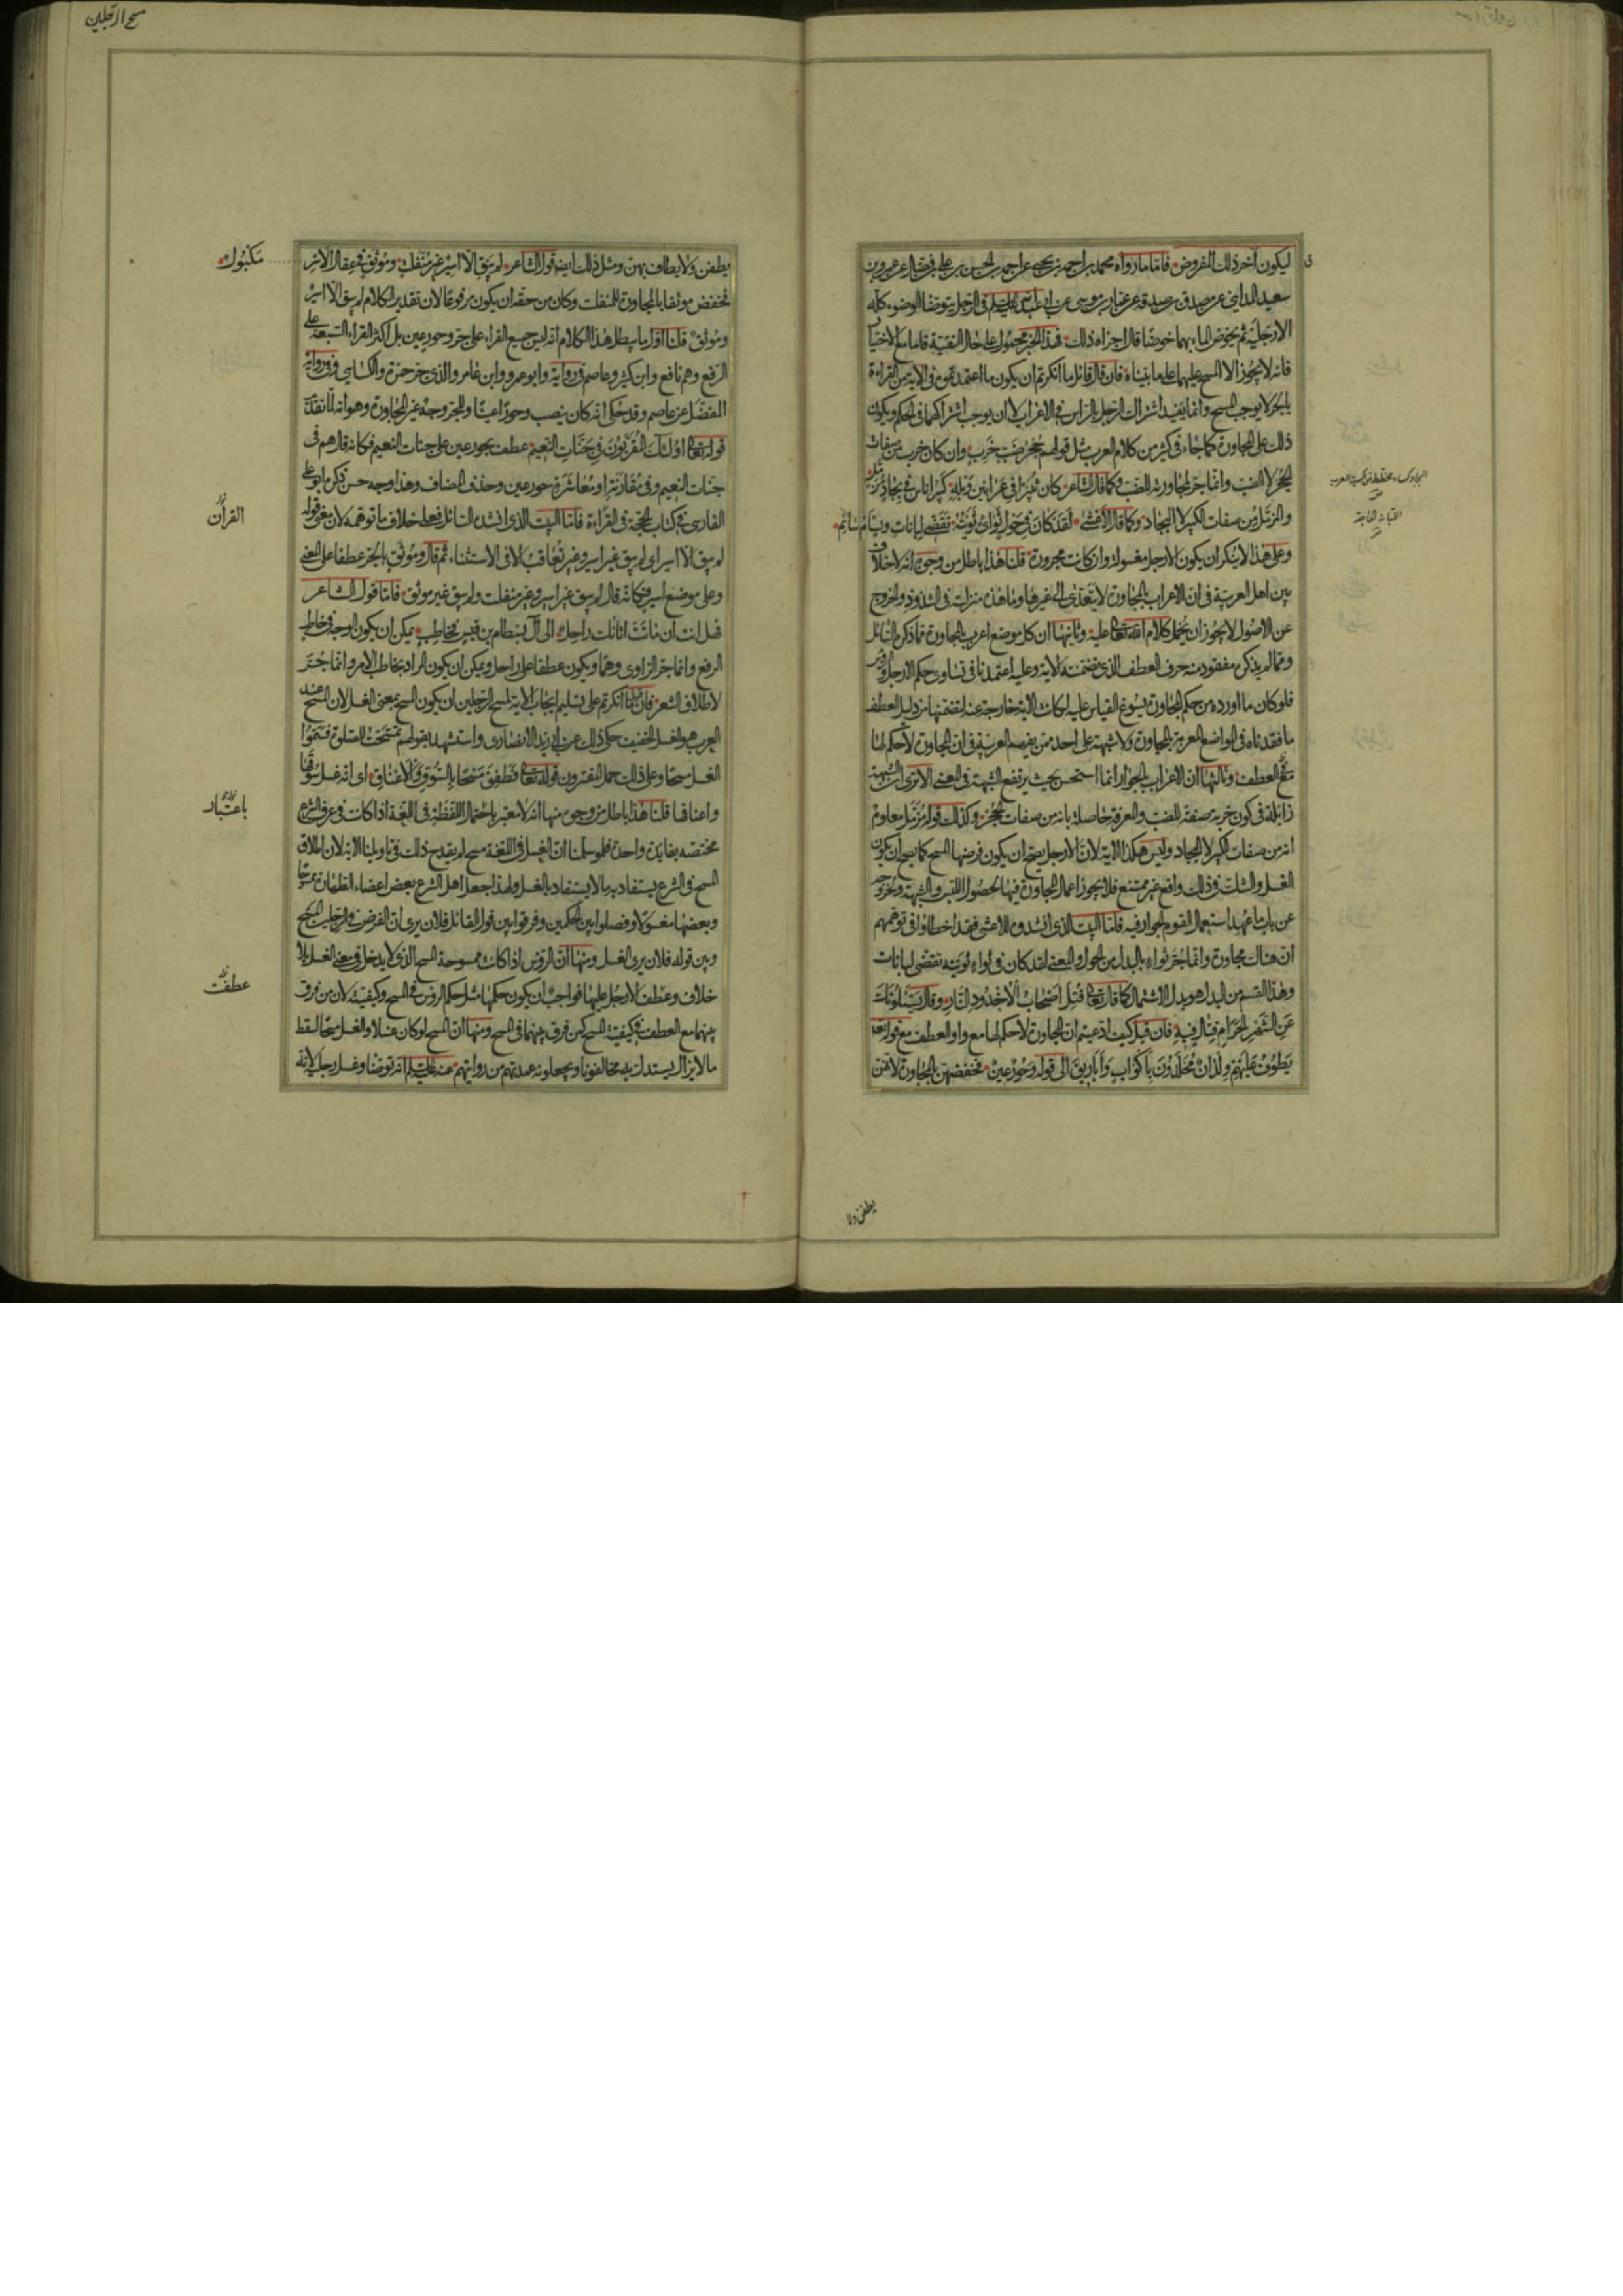 ليكون آخر ذلك المفروض فاما ما رواه محمد بن احمد بن يحيى عن احمد بن الحسن بن علي بن فضال عن عمرو بن
سعيد المدائني عن مصدق بن صدقة عن عمار بن موسى عن ابي عبد الله عليه السلم في الرجل يتوضأ الوضوء كله
الا رجليه ثم يخوض الماء بهما خوضا قال اجزاه ذلك فهذا الخبر محمول على حال التقية فاما مع الاختيار
فانه لا يجوز الا المسح عليهما على ما بيناه فان قال قائل ما انكرتم ان يكون ما اعتمدتموه في الاية من القراءة
بالجر لا يوجب المسح وانما يفيد اشتراك الرجل بالراس في الاعراب لا ان يوجب اشتراكهما في الحكم ويكون
ذلك على المجاورة كما جاء في كثير من كلام العرب مثل قولهم جحر ضب خرب وان كان خرب من صفات
الجحر لا الضب وانما جر لمجاورته للضب وكما قال الشاعر كان ثبيرا في عرانين وبله كبير اناس في بجاد مزمل
والمزمل من صفات الكبير لا البجاد وكما قال الاعشى لقد كان في حول ثواء ثويته تقضي لبانات ويسام سائم
وعلى هذا لا ننكر ان يكون الارجل مغسولة وان كانت مجرورة قلنا هذا باطل من وجوه انه لا خلاف
بين اهل العربية في ان الاعراب بالمجاورة لا يتعدى الى غيرها وما هذه منزلته في الشذوذ والخروج
عن الاصول لا يجوز ان يحمل كلام الله تعالى عليه وثانيها ان كل موضع اعرب بالمجاورة مما ذكره السائل
ومما لم يذكره مفقود منه حرف العطف الذي تضمنته الاية وعليه اعتمدنا في تساوي حكم الارجل والرؤس
فلو كان ما اورده من حكم المجاورة يسوغ القياس عليه لكانت الاية خارجة عنه لتضمنها من دليل العطف
ما فقدناه في المواضع المعربة بالمجاورة ولا شبهة على احد ممن يفهم العربية في ان المجاورة لا حكم لها
مع العطف وثالثها ان الاعراب بالجوار انما استحسن بحيث يرتفع الشبهة في المعنى الا ترى ان الشبهة
زايلة في كون خرب من صفة الضب والمعرفة حاصلة بانه من صفات الجحر وكذلك قوله مزمل معلوم
انه من صفات الكبير لا البجاد وليس هكذا الاية لان الارجل يصح ان يكون فرضها المسح كما يصح ان يكون
الغسل والشك في ذلك واقع غير ممتنع فلا يجوز اعمال المجاورة فيها لحصول اللبس والشبهة وخروجه
عن باب ما عهد استعمال القوم الجوار فيه فاما البيت الذي انشدوه للاعشى فقد اخطاوا في توهمهم
ان هناك مجاورة وانما جر ثواء بالبدل من الحول والمعنى لقد كان في ثواء ثويته تقضي لبانات
وهذا القسم من البدل هو بدل الاشتمال كما قال تعالى قتل اصحاب الاخدود النار وقال يسئلونك
عن الشهر الحرام قتال فيه فان قيل كيف ادعيتم ان المجاورة لا حكم لها مع واو العطف مع قوله تعالى
يطوف عليهم ولدان مخلدون باكواب واباريق الى قوله وحور عين فخفضهن بالمجاورة لانهن
المجاور كساء مخطط من اكسية العرب
اللبانة الحاجة
يطفن ولا
مسح الرجلين
يطفن ولا يطاف بهن ومثل ذلك ايضا قول الشاعر لم يبق الا اسير غير منفلت وموثق في عقال الاسر
مكبول
فخفض موثقا بالمجاورة للمنفلت وكان من حقه ان يكون مرفوعا لان تقدير الكلام لم يبق الا اسير
وموثق قلنا اول ما يبطل هذا الكلام انه ليس جميع القراء على جر وحور عين بل اكثر القراء السبعة على
الرفع وهم نافع وابن كثير وعاصم في رواية وابو عمرو وابن عامر والذي جر حمزة والكسائي وفي رواية
المفضل عن عاصم وقد حكى انه كان ينصب وحورا عينا وللجر وجه غير المجاورة وهو انه لما تقدم
قوله تعالى اولئك المقربون في جنات النعيم عطف بحور عين على جنات النعيم فكانه قال هم في
جنات النعيم وفي مقاربة او معاشرة حور عين وحذف المضاف وهذا وجه حسن ذكره ابو علي
الفارسي في كتاب الحجة في القراءة فاما البيت الذي انشده السائل فعلى خلاف ما توهمه لان معنى قوله
القرآن
لم يبق الا اسير اي لم يبق غير اسير وغير تعاقب الا في الاستثناء ثم قال وموثق بالجر عطفا على المعنى
وعلى موضع اسير فكانه قال لم يبق غير اسير وغير منفلت ولم يبق غير موثق فاما قول الشاعر
فهل انت ان ماتت اتانك راحل الى آل بسطام بن قيس فخاطب يمكن ان يكون الوجه في خاطب
الرفع وانما جر الراوي وهما ويكون عطفا على راحل ويمكن ان يكون المراد بخاطب الامر وانما جر
لاطلاق الشعر فان قيل ما انكرتم على تسليم ايجاب الاية لمسح الرجلين ان يكون المسح بمعنى الغسل لان المسح عند
العرب هو الغسل الخفيف حكى ذلك عن ابي زيد الانصاري واستشهد بقولهم تمسحت للصلوة فسموا
الغسل مسحا وعلى ذلك حمل المفسرون قوله تعالى فطفق مسحا بالسوق والاعناق اي انه غسل سوقها
واعناقها قلنا هذا باطل من وجوه منها انه لا معتبر باحتمال اللفظة في اللغة اذا كانت في عرف الشرع
باعتبار
مختصة بفايدة واحدة فلو سلمنا ان الغسل في اللغة مسح لم يقدح ذلك في تاويلنا الاية لان اطلاق
المسح في الشرع يستفاد به ما لا يستفاد بالغسل ولهذا جعل اهل الشرع بعض اعضاء الطهارة ممسوحا
وبعضها مغسولا وفصلوا بين الحكمين وفرقوا بين قول القائل فلان يرى ان الفرض في الرجلين المسح
وبين قوله فلان يرى الغسل ومنها ان الرؤس اذا كانت ممسوحة المسح الذي لا يدخل في معنى الغسل بلا
خلاف وعطف الارجل عليها فواجب ان يكون حكمها مثل حكم الرؤس في المسح وكيفيته لان من فرق
عطفت
بينهما مع العطف في كيفية المسح كمن فرق بينهما في المسح ومنها ان المسح لو كان غسلا والغسل مسحا لسقط
ما لا يزال يستدل به مخالفونا ويجعلونه عمدتهم من روايتهم عنه عليه السلم انه توضأ وغسل رجليه لانه